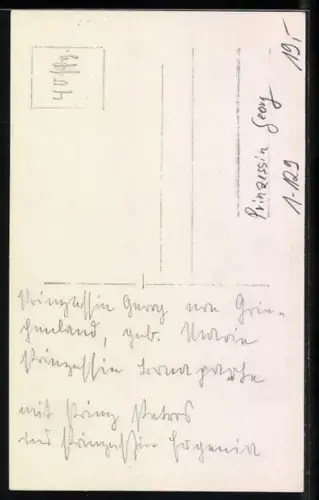 40 Pfg.
Prinzessin Georg
1-129
19,-
Prinzessin Georg von Grie-
chenland, geb. Marie
Prinzessin Bonaparte
mit Prinz Petros
und Prinzessin Eugenia